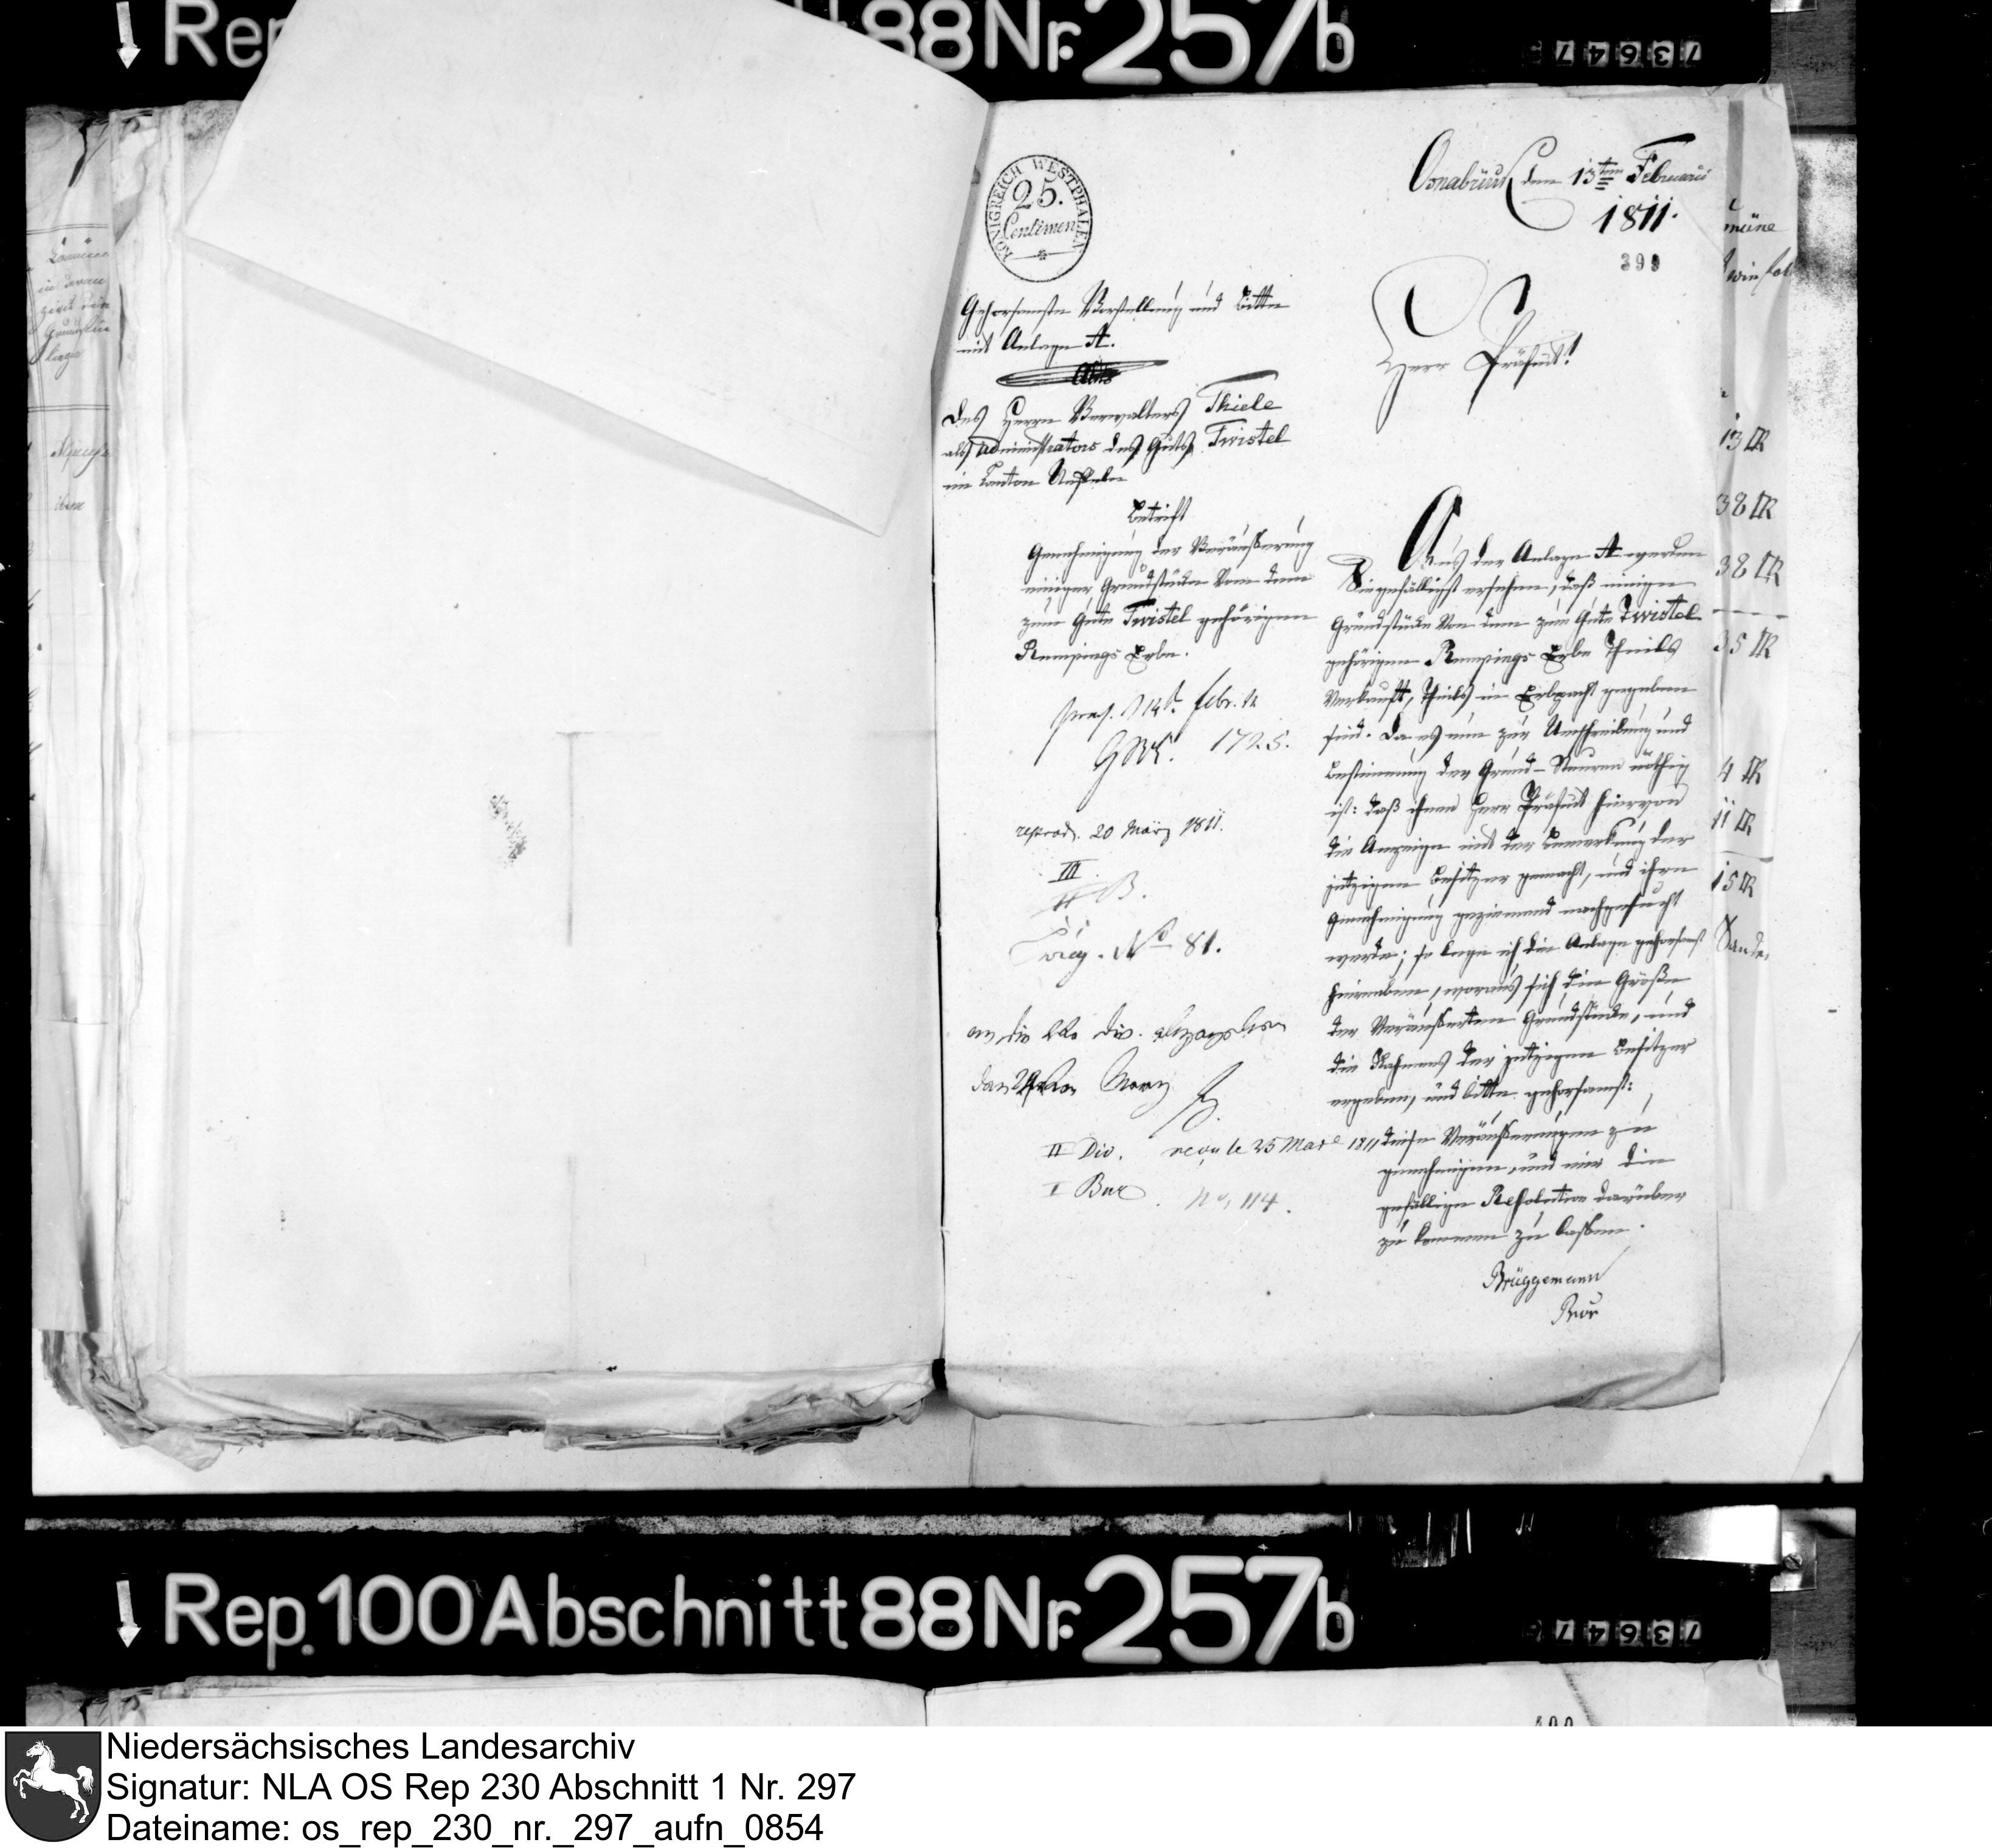 Rep
88 Nr. 257b
73647
KÖNIGREICH WESTPHALEN
25.
Centimen
Osnabrück den 13ten Februarii
1811.
399
Gehorsamste Vorstellung und Bitte
mit Anlage A.
Des Herrn Verwalters Thiele
als Administrators des Guts Twistel
im Canton
Betrift
Genehmigung der Veräußerung
einiger Grundstücke von dem
zum Gute Twistel gehörigen
Rempings Erbe.
praes. d 14t. Febr. 11
1725.
reprod. 20 März 1811.
III.
II B.
No 81.
an die 2te Div. abzugeben
den März
II Div. reçu le 25 Mars 1811
I Bur. no. 114.
Herr Präfect!
Aus der Anlage A werden
Sie gefälligst ersehen, daß einige
Grundstücke von dem zum Gute Twistel
gehörigen Rempings Erbe Theils
verkauft, Theils in Erbpacht gegeben
sind. Da es nun zur Umschreibung und
Bestimmung der Grund-Steuren nöthig
ist: daß ihnen Herr Präfect hiervon
die Anzeige mit der Bemerkung der
jetzigen Besitzer gemacht, und ihre
Genehmigung geziemend nachgesucht
werde; so lege ich die Anlage gehorsamst
hierneben, woraus sich die Größe
der Veräußerten Grundstücke, und
die Nahmens der jetzigen Besitzer
ergeben, und bitte gehorsamst:
diese Veräußerungen zu
genehmigen, und mir die
gefällige Resolution darüber
zu kommen zu lassen.
Brüggemann
Prör
13 R
38 R
38 R
35 R
4 R
11 R
15 R
Rep. 100 Abschnitt 88 Nr. 257b
73647
400
Niedersächsisches Landesarchiv
Signatur: NLA OS Rep 230 Abschnitt 1 Nr. 297
Dateiname: os_rep_230_nr._297_aufn_0854